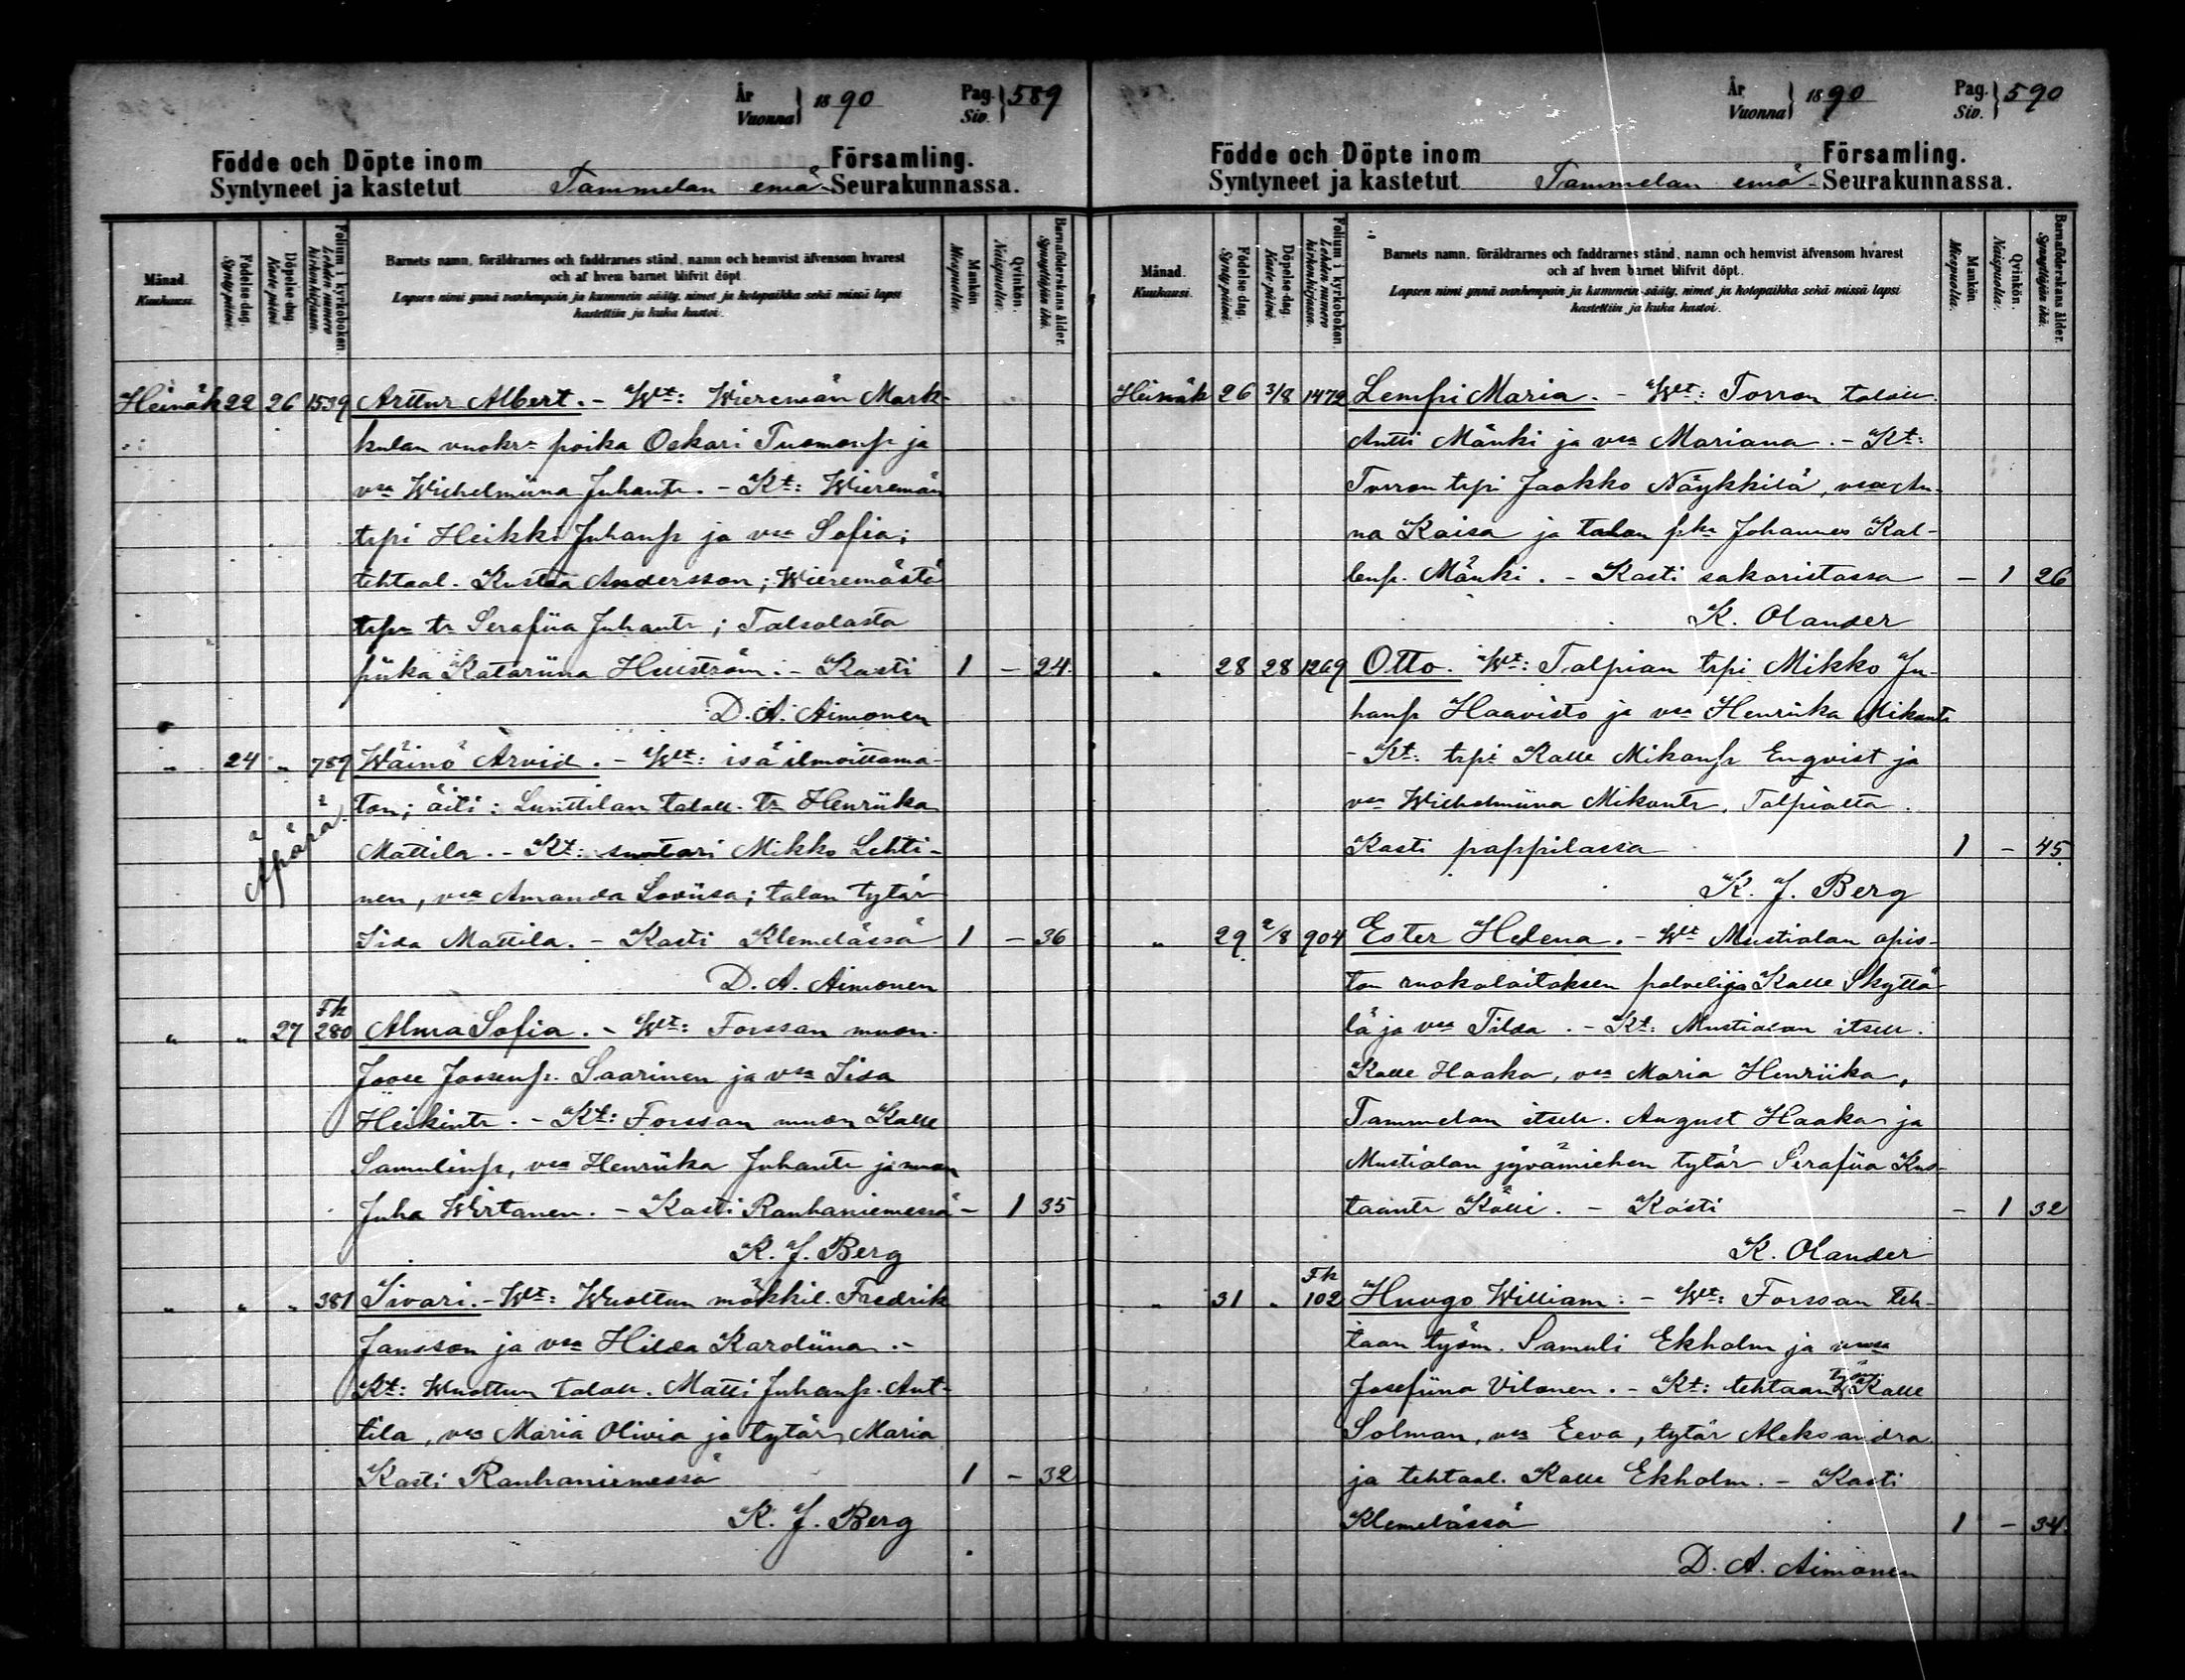 År
Vuonna } 1890 Pag. Siv. } 589
Födde och Döpte inom Församling.
Syntyneet ja kastetut Tammelan emä- Seurakunnassa.
Månad. Kuukausi. Födelse dag. Synty päivä. Döpelse dag. Kaste päivä. Folium i kyrkoboken. Lehden numero kirkonkirjassa. Barnets namn, föräldrarnes och faddrarnes stånd, namn och hemvist äfvensom hvarest
och af hvem barnet blifvit döpt.
Lapsen nimi ynnä vanhempain ja kummein sääty, nimet ja kotopaikka sekä missä lapsi
kastettiin ja kuka kastoi. Mankön Miespuolia. Qvinkön. Naispuolia. Barnaföderskans ålder. Synnyttäjän ikä.
Heinäk 22 26 1539 Arttur Albert. - Wt: Wieremän Mark-
kulan vuokr= poika Oskari Tuomonp ja
vsa Wichelmiina Juhantr. - Kt: Wieremän
trpi Heikki Juhanp ja vsa Sofia;
tehtaal. Kustaa Andersson; Wieremästä
trpn tr Serafiia Juhantr; Talsolasta
piika Katariina Heiström. - Kasti 1 - 24.
D. A. Aimonen
" 24 " 789 Wäinö Arvid. - Wt: isä ilmoittama-
Äpärä
ton; äiti: Lunttilan taloll. tr Henriika
Mattila. - Kt: suutari Mikko Lehti-
nen, vsa Amanda Loviisa; talon tytär
Iida Mattila. - Kasti Klemelässä 1 - 36
D. A. Aimonen
" " 27 Fk 280 Alma Sofia. - Wt: Forssan muon.
Joose Joosenp. Saarinen ja vsa Iida
Heikintr. - Kt: Forssan muon Kalle
Samulinp, vsa Henriika Juhantr ja muon
Juha Wirtanen. - Kasti Rauhaniemessä - 1 35
K. J. Berg
" " " 381 Iivari. - Wt: Wuoltun mökkil. Fredrik
Jansson ja vsa Hilda Karoliina. -
Kt: Wuoltun taloll. Matti Juhanp. Ant-
tila, vsa Maria Olivia ja tytär Maria
Kasti Rauhaniemessä 1 - 32
K. J. Berg
År
Vuonna } 1890 Pag. Siv. } 590
Födde och Döpte inom Församling.
Syntyneet ja kastetut Tammelan emä- Seurakunnassa.
Månad. Kuukausi. Födelse dag. Synty päivä. Döpelse dag. Kaste päivä. Folium i kyrkoboken. Lehden numero kirkonkirjassa. Barnets namn, föräldrarnes och faddrarnes stånd, namn och hemvist äfvensom hvarest
och af hvem barnet blifvit döpt.
Lapsen nimi ynnä vanhempain ja kummein sääty, nimet ja kotopaikka sekä missä lapsi
kastettiin ja kuka kastoi. Mankön Miespuolia. Qvinkön. Naispuolia. Barnaföderskans ålder. Synnyttäjän ikä.
Heinäk 26 3/8 1472 Lempi Maria. - Wt: Torron taloll.
Antti Mänki ja vsa Mariana. - Kt:
Torron trpi Jaakko Näykkilä, vsa An-
na Kaisa ja talon pka Johannes Kal-
lenp. Mänki. - Kasti sakaristassa - 1 26
K. Olander
" 28 28 1269 Otto. Wt: Talpian trpi Mikko Ju-
hanp Haavisto ja vsa Henriika Mikontr
- Kt: trpi Kalle Mikonp Enqvist ja
vsa Wilhelmiina Mikontr, Talpialta.
Kasti pappilassa 1 - 45.
K. J. Berg
" 29 2/8 904 Ester Helena. - Wt Mustialan opis-
ton ruokalaitoksen palvelija Kalle Skyttä-
lä ja vsa Tilda. - Kt: Mustialan itsell.
Kalle Haaka, vsa Maria Henriika,
Tammelan itsell. August Haaka ja
Mustialan jyvämiehen tytär Serafiia Kus-
taantr Källi. - Kasti - 1 32
K. Olander
" 31 " Fk 102 Huugo William: - Wt: Forssan teh-
taan työm. Samuli Ekholm ja vsa
Josefiina Vilonen. - Kt: tehtaan työm Kalle
Solman, vsa Eeva, tytär Aleksandra
ja tehtaal. Kalle Ekholm. - Kasti
Klemelässä 1 - 34.
D. A. Aimonen